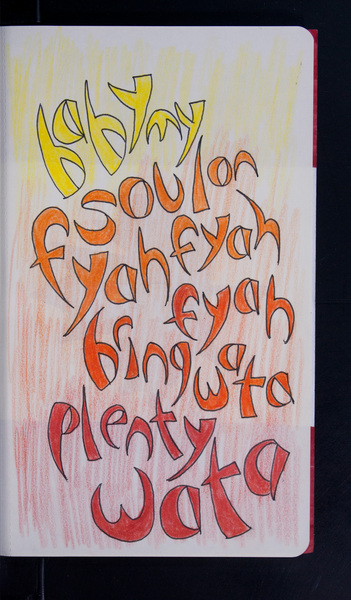 baby my
soul on
fyah fyah
fyah
bring wata
plenty
wata